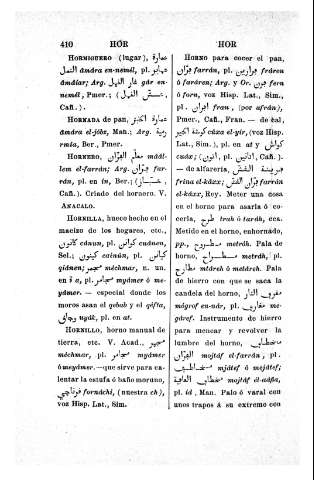 410 HÓR HOR
HORMIGUERO (lugar), عمارة
النمل âmára en-nemél, pl. عمائر
âmáiar; Arg. غار النمل gár en-
nemél, Pmer.;
Cañ.).
HORNADA de pan, عمارة الخبز
âmára el-jóbz, Man.; Arg. رمية
rmía, Ber., Pmer.
HORNERO, معلّم الفرّان máâl-
lem el-farrán; Arg. فرّان far-
rán, pl. en in, Ber.; (خبّاز,
Cañ.). Criado del hornero. V.
ANACALO.
HORNILLA, hueco hecho en el
macizo de los hogares, etc.,
كانون cánun, pl. كوانن cuánen,
Sel.; كينون cainún, pl. كيانن
qiánen; مجمر méchmar, n. un.
en ة a, pl. مجامر myámer ó me-
yámer. — especial donde los
moros asan el qebab y el qófta,
وجاق uyák, pl. en at.
HORNILLO, horno manual de
tierra, etc. V. Acad., مجمر
méchmar, pl. مجامر myámer
ó meyámer. — que sirve para ca-
lentar la estufa ó baño moruno,
فرناچي fornáchi, (nuestra ch),
voz Hisp. Lat., Sim.
HORNO para cocer el pan,
فرّان farrán, pl. فرارن fráren
ó faráren; Arg. y Or. فرن fern
ó forn, voz Hisp. Lat., Sim.,
pl. افران fran, (por afrán),
Pmer., Cañ., Fran. — de cal,
كوشة الجير cúxa el-yir, (voz Hisp.
Lat., Sim.), pl. en at y كواش
cuáx; (اتون, pl. اتاتين, Cañ.).
— de alfarería, فرينة القشّ
frína el-káxx; فرّان القشّ farrán
el-káxx, Rey. Meter una cosa
en el horno para asarla ó co-
cerla, طرح trah ó taráh, ćea.
Metido en el horno, enhornado,
pp., مطروح metróh. Pala de
horno, مطرح metráh, pl.
مطارح mtáreh ó metáreh. Pala
de hierro con que se saca la
candela del horno, مغرف النار
mágref en-nár, pl. مغارف me-
gáref. Instrumento de hierro
para menear y revolver la
lumbre del horno, مخطاف
الفرّان mojtáf el-farrán, pl.
مخاطف mjátef ó mojátef;
مخطاف العافية mojtáf el-uáfia,
pl. id, Man. Palo ó varal con
unos trapos á su extremo con